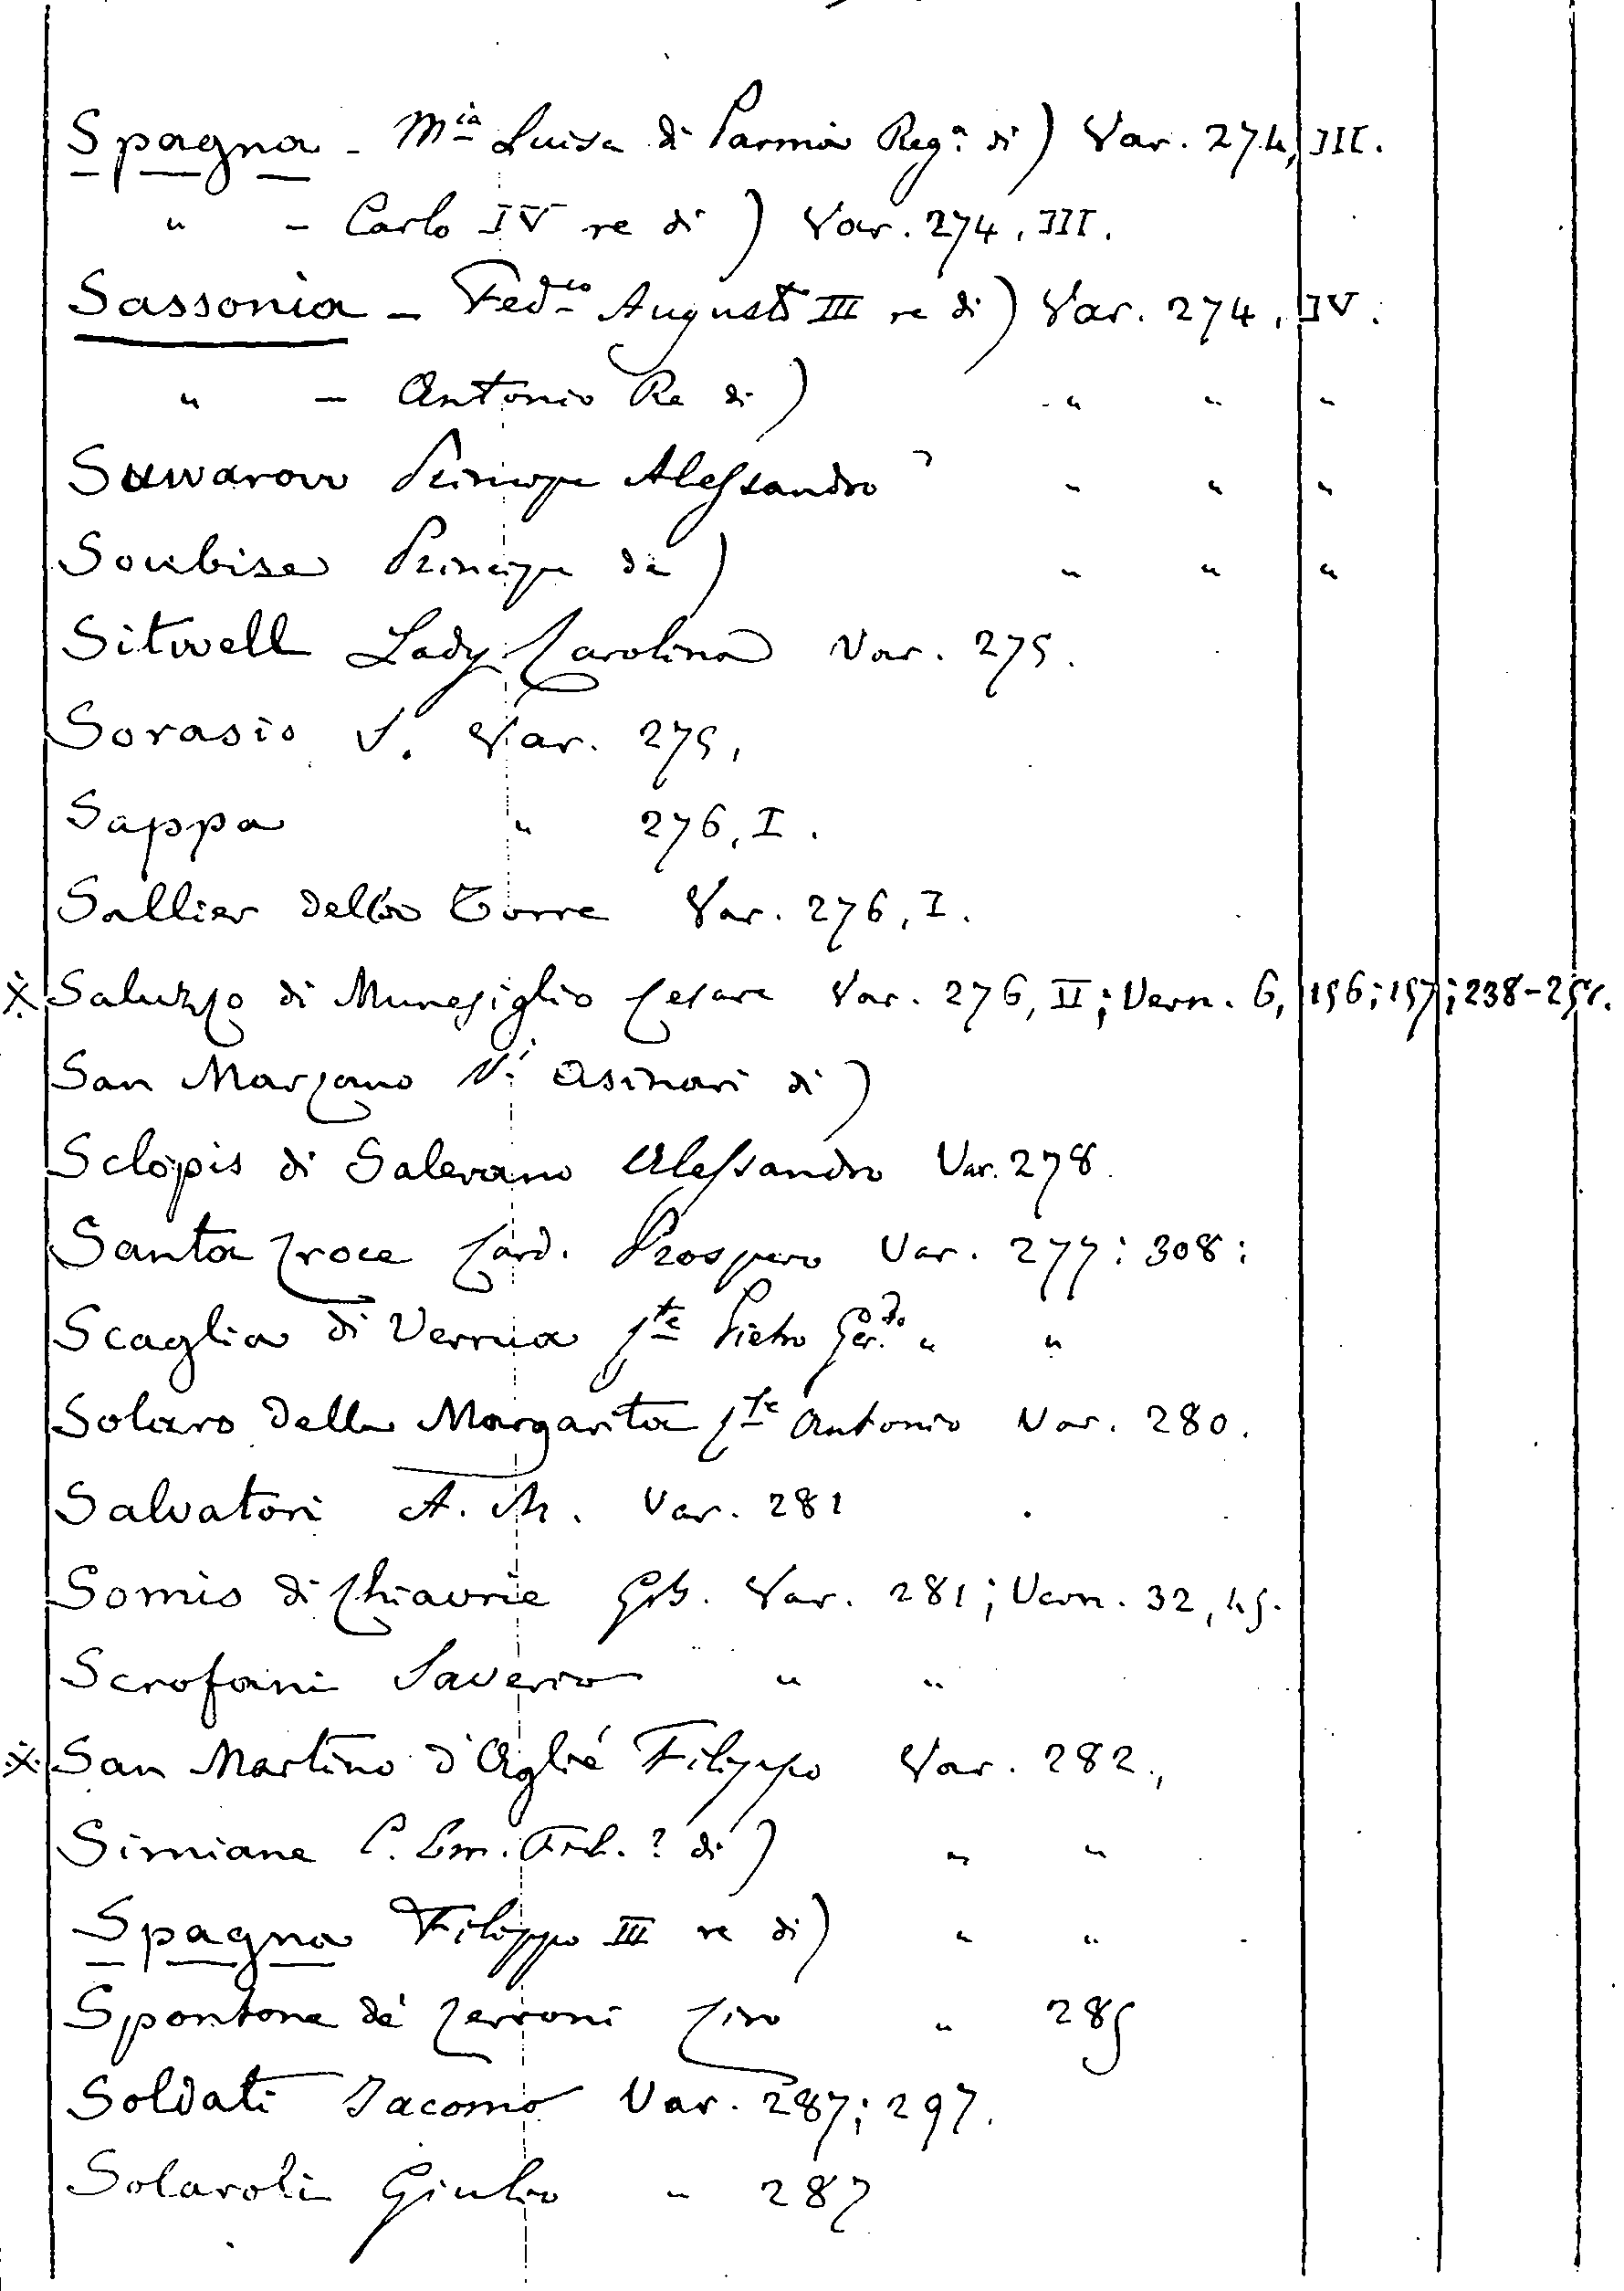 Spagna - Mia Luisa di Parma Rega di) Var. 274, III.
" - Carlo IV re di) Var. 274, III.
Sassonia - Fedco Augusto III re di) Var. 274, IV.
" - Antonio Re di) " " "
Suwarow Principe Alessandro " " "
Soubise Principe de) " " "
Sitwell Lady Carolina Var. 275.
Sorasio S. Var. 275,
Sappa " 276, I.
Sallier della Torre Var. 276, I.
※ Saluzzo di Monesiglio Cesare Var. 276, II; Vern. 6, 156; 157; 238-251.
San Marzano V. Asinari di)
Sclopis di Salerano Alessandro Var. 278.
Santa Croce Card. Prospero Var. 277; 308;
Scaglia di Verrua Cte Pietro Ger.do " "
Solaro della Margarita Cte Antonio Var. 280.
Salvatori A. M. Var. 281
Somis di Chiavrie GB. Var. 281; Vern. 32, 45.
Scrofani Saverio " "
※ San Martino d'Aglié Filippo Var. 282.,
Simiane C. Em. Fil. ? di) " "
Spagna Filippo III re di) " "
Spontone de' Cerroni Ciro " 285
Soldati Jacomo Var. 287; 297.
Solaroli Giulio " 287